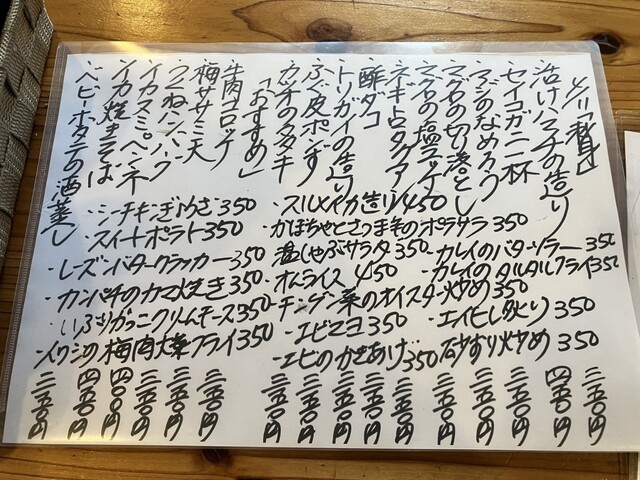 活けハマチの造り 三五〇円
セイコガニ一杯 四五〇円
アジのなめろう 三五〇円
マグロの切り落とし 三五〇円
マグロの塩ユッケ 三五〇円
ネギトロタクアン 三五〇円
酢ダコ 三五〇円
トリガイの造り 三五〇円
ふぐ皮ポンず 三五〇円
カツオのタタキ 三五〇円
「おすすめ」
牛肉コロッケ 三五〇円
梅ササミ天 三五〇円
つくねハンバーグ 三五〇円
イカスミペンネ 四〇〇円
イカ焼きそば 四五〇円
ベビーホタテの酒蒸し 三五〇円
・シーチキンぎょうざ350
・スイートポテト350
・レーズンバタークラッカー350
・カンパチのカマ焼き350
・いぶりがっこクリームチーズ350
・イワシの梅肉大葉フライ350
・スルメイカ造り450
・かぼちゃとさつま芋のポテサラ350
・温しゃぶサラダ350
・オムライス450
・チンゲン菜のオイスター炒め350
・エビマヨ350
・エビのかきあげ350
・カレイのバターソテー350
・カレイのタルタルフライ350
・エイヒレ炙り350
・砂ずり炒め350